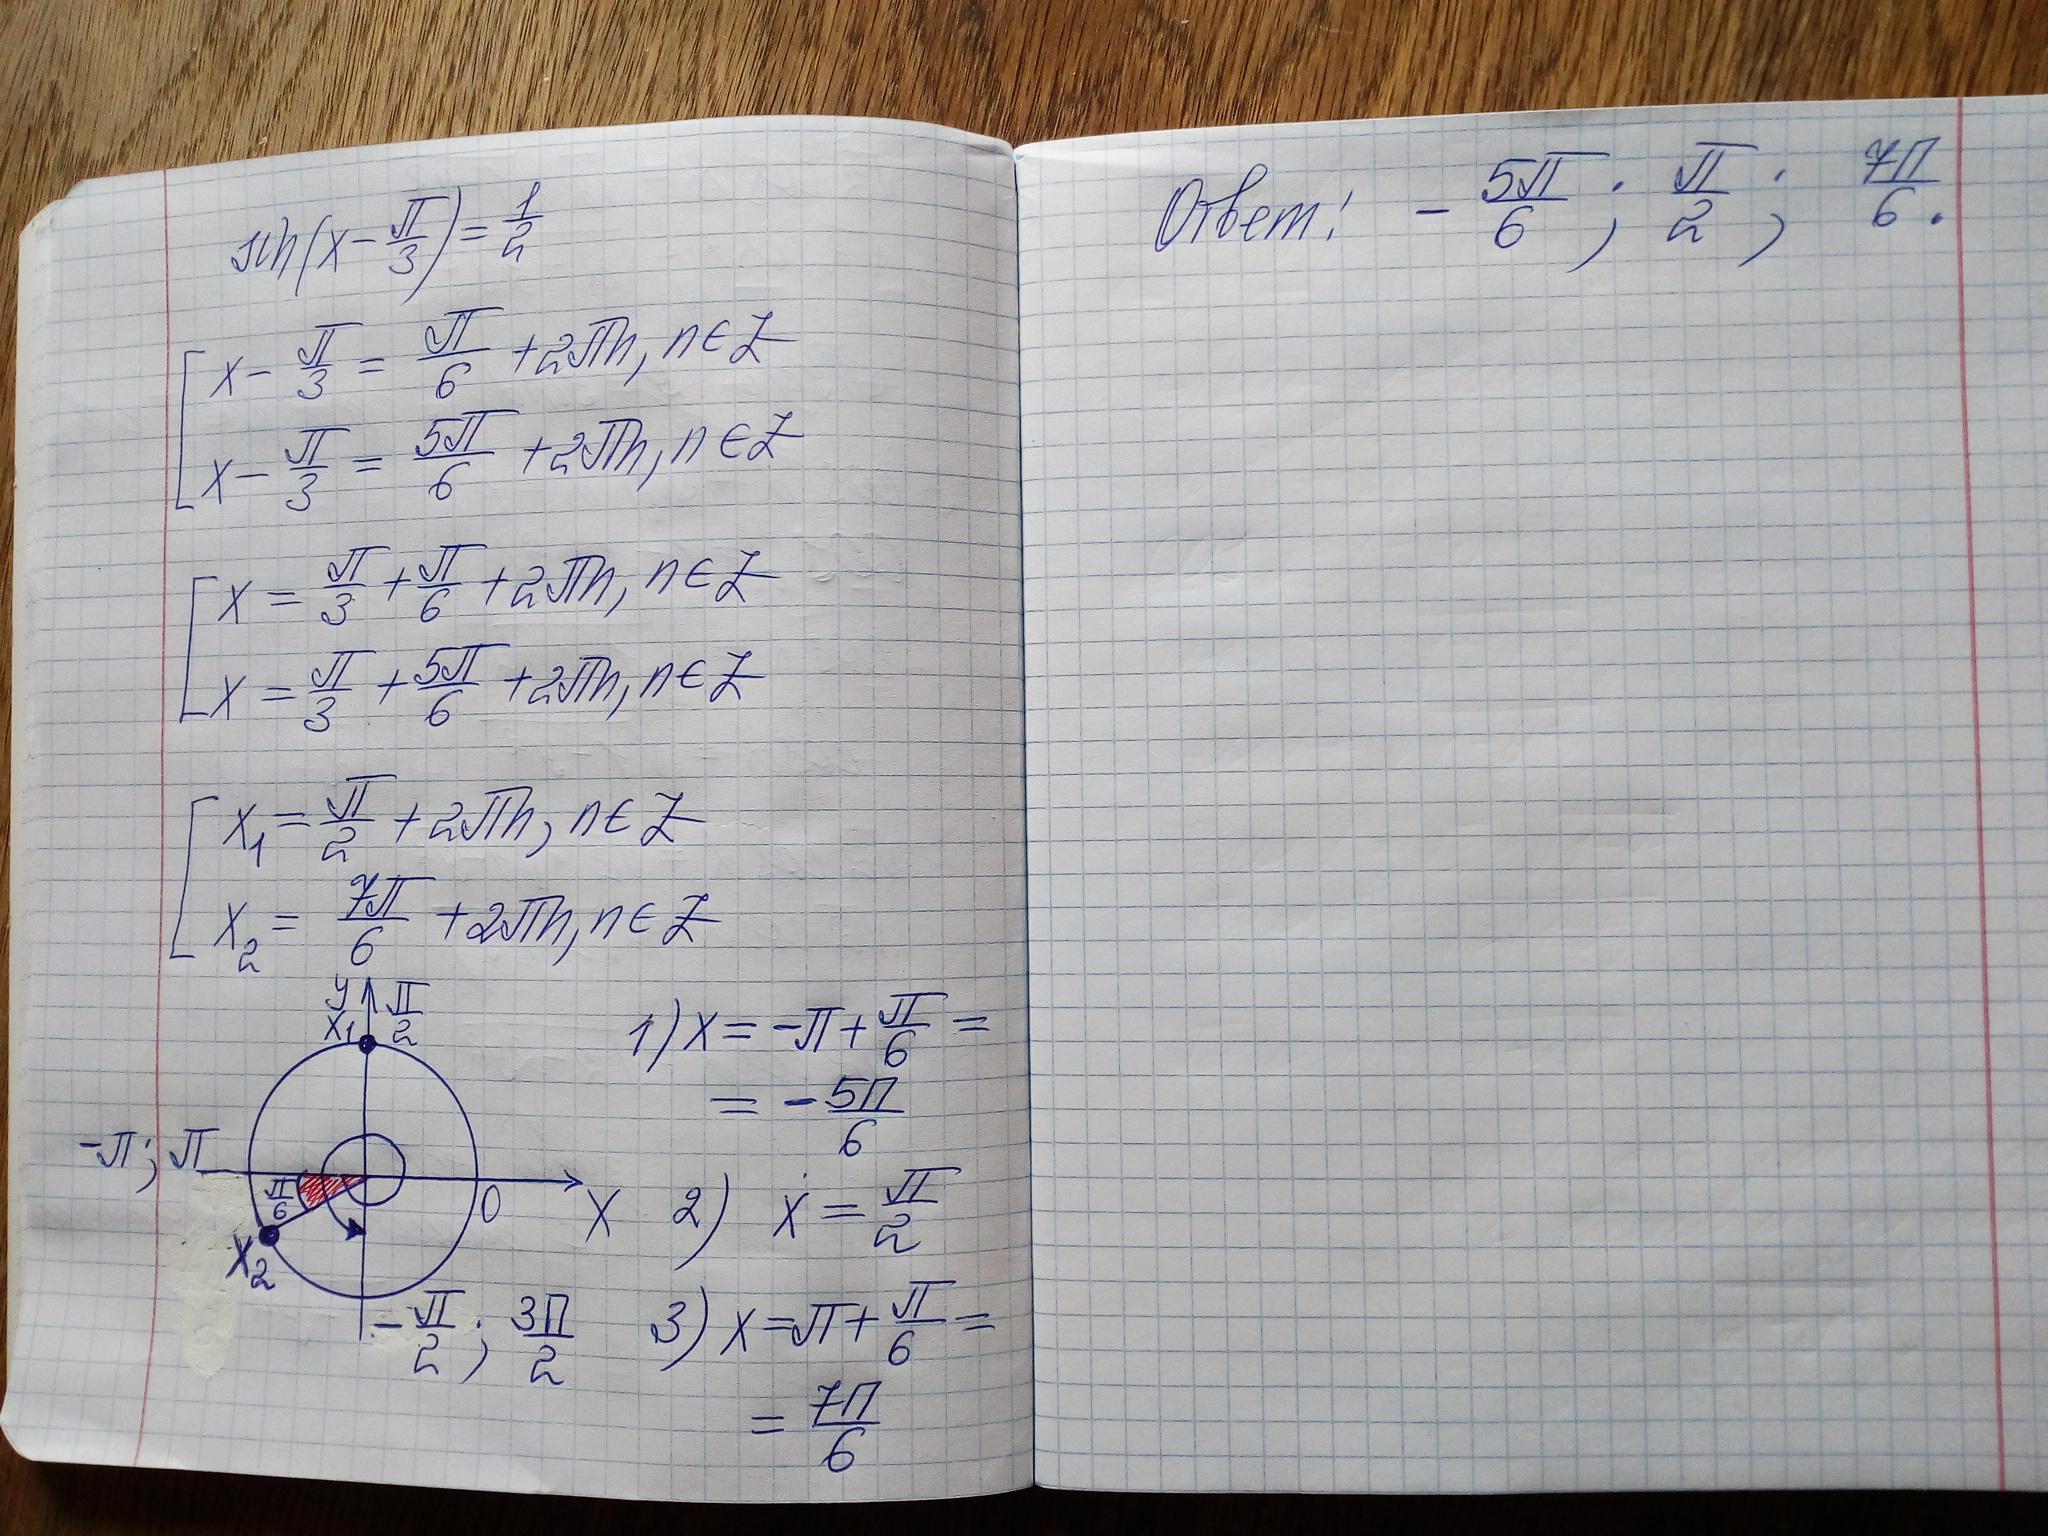 sin(x - π/3) = 1/2
x - π/3 = π/6 + 2πn, n ∈ Z
x - π/3 = 5π/6 + 2πn, n ∈ Z
x = π/3 + π/6 + 2πn, n ∈ Z
x = π/3 + 5π/6 + 2πn, n ∈ Z
x₁ = π/2 + 2πn, n ∈ Z
x₂ = 7π/6 + 2πn, n ∈ Z
y
x₁
π/2
-π; π
π/6
0
x
x₂
-π/2; 3π/2
1) x = -π + π/6 =
= -5π/6
2) x = π/2
3) x = π + π/6 =
= 7π/6
Ответ: -5π/6; π/2; 7π/6.